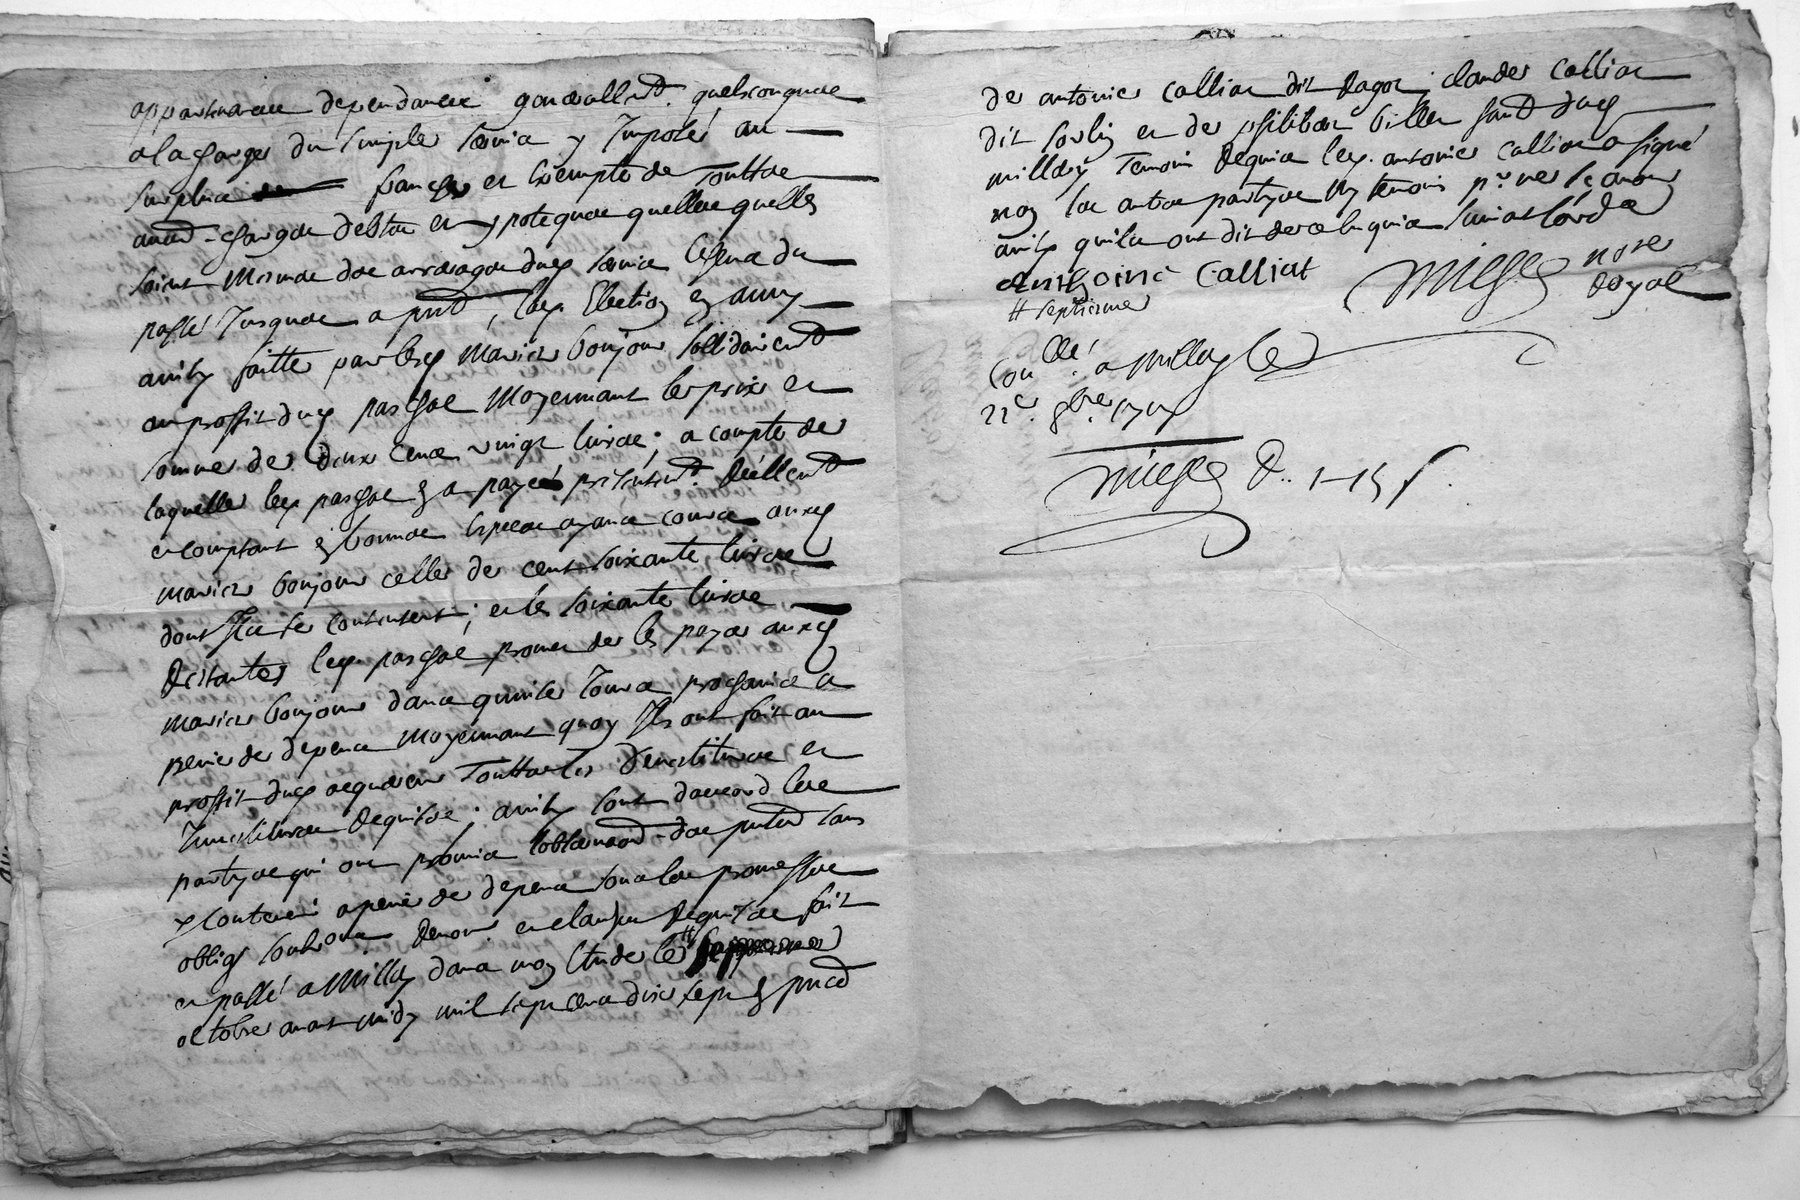 appartenance dependance generallem^t. quelsconques
a la charge du simple servis y Imposé au
surplus franche et Exempte de Touttes
aud. charges debtes et ypoteques quelles quelles
soient Mesmes des arrerages dud servis Cens du
passé Jusques a pnt, lad. Election en amy
ainsy faitte par lesd Mariez bonjour sollidairem^t
au proffit dud paschal Moyennant le prix et
somme de deux cens vingt livres; a compte de
laquelle led paschal en a payé présentem^t. Réellem^t
et comptant en bonnes Especes ayans cours auxd
mariez bonjour celle de cent soixante livres
dont Ils se contentent; et les soixante livres
Restantes led. paschal promet de les payer auxd
mariez bonjour dans quinze Jours prochains a
peine de depens moyennant quoy Ils ont fait au
proffit dud acquereur Touttes les Devestitures et
Investitures Requises; ainsy sont d'accord les
partyes qui ont promis l'observaon des pntes sans
y contrevenir a peine de depens sous les promesses
oblig soubs^ons Renon^ et clauses Requises fait
et passé a Milly dans mon Etude le #
octobre avant midy mil sept cens dix sept en pnce
de antoine Calliat dit Ragot, claude Calliat
dit sorlin et de philibert billet said dud
milly Temoins Requis led. antoine Calliat a signé
non les autres partyes ny temoins p^r. ne sçavoir
ainsy qu'ils ont dit de ce Enquis suivant l'ord^e
anthoine Calliat
# septieme
Miege no^re Royal
Con^llé. a Milly le
22^e. 8^bre 1717
Miege R.. 1-15 s.